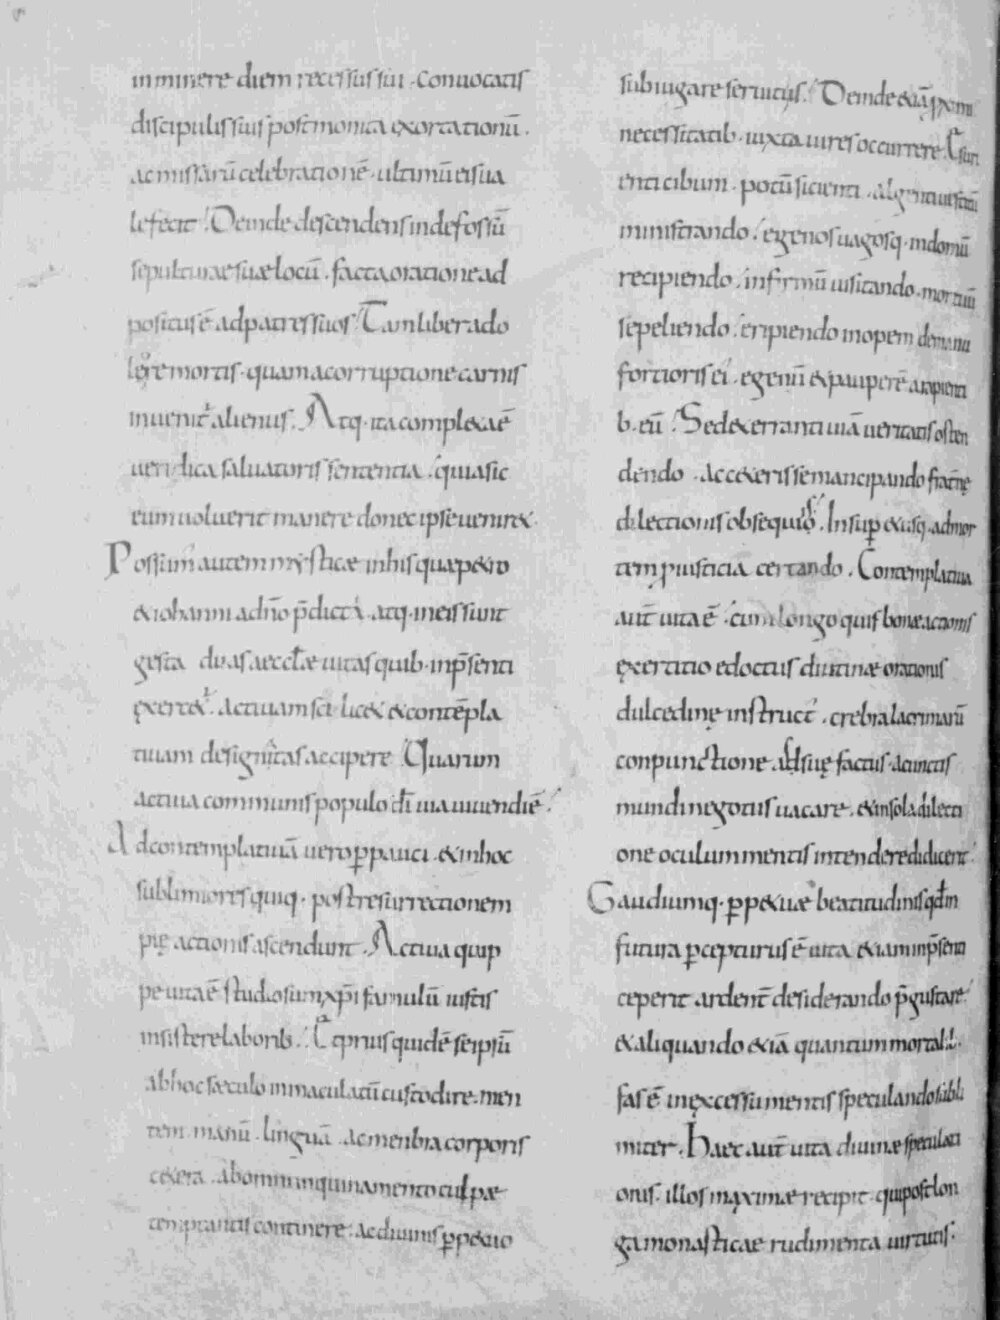 inminere diem recessus sui · convocatis
discipulis suis post monita exortationū ·
ac missarū celebrationē · ultimū eis va
le fecit · Deinde descendens in defossū
sepulturae suæ locū · facta oratione ad
positus ē ad patres suos · Tam liber a do
lore mortis · quam a corruptione carnis
invenit᷑ alienus · Atq· ita completa ē
veridica salvatoris sententia · quia sic
eum voluerit manere donec ipse veniret ·
Possunt autem mysticæ in his quæ petro
& iohanni a dn̄o p̄dicta atq· in eis sunt
gesta duas aeccłæ vitas quib· in p̄senti
exercet᷑ · activam sci licet & contēpla
tivam designatas accipere · Quarum
activa communis populo dī via vivendi ē ·
Ad contemplativā vero ꝑpauci · & in hoc
sublimiores quiq· post resurrectionem
pię actionis ascendunt · Activa quip
pe vita ē studiosum xp̄i famulū iustis
insistere laborib· · Et prius quidē se ipsū
ab hoc sæculo inmaculatū custodire · men
tem · manū · linguā · ac menbra corporis
cetera · ab omni inquinamento culpæ
temptantis continere · ac divinis ꝑpetuo
subiugare servitiis · Deinde & iā p̱ximi
necessitatib· iuxta vires occurrere · Esuri
enti cibum · potū sicienti · algenti vestitū
ministrando · egenos vagosq· in domū
recipiendo · infirmū visitando · mortuū
sepeliendo · eripiendo inopem de manu
fortioris ei · egenū & pauperē a rapienti
b· eū · Sed & erranti viā veritatis osten
dendo · ac ceteris se mancipando fratnę
dilectionis obsequiis · Insuꝑ & usq· ad mor
tem p̱ iusticia certando · Contemplativa
aut̄ vita ē · cum longo quis bonæ actionis
exertitio edoctus diutinæ orationis
dulcedinę instruct᷒ · crebra lacrimarū
conpunctione adsuę factus · a cunctis
mundi negotiis vacare · & in sola dilecti
one oculum mentis intendere didicerit ·
Gaudiumq· ꝑpetuæ beatitudinis qd̄ in
futura ꝑcepturus ē vita etiam in p̄senti
ceperit ardent̄ desiderando p̄gustare ·
& aliquando & iā quantum mortalib·
fas ē in excessu mentis speculando subli
miter · Haec aut̄ vita divinæ speculati
onis · illos maximæ recipit · qui post lon
ga monasticae rudimenta virtutis ·